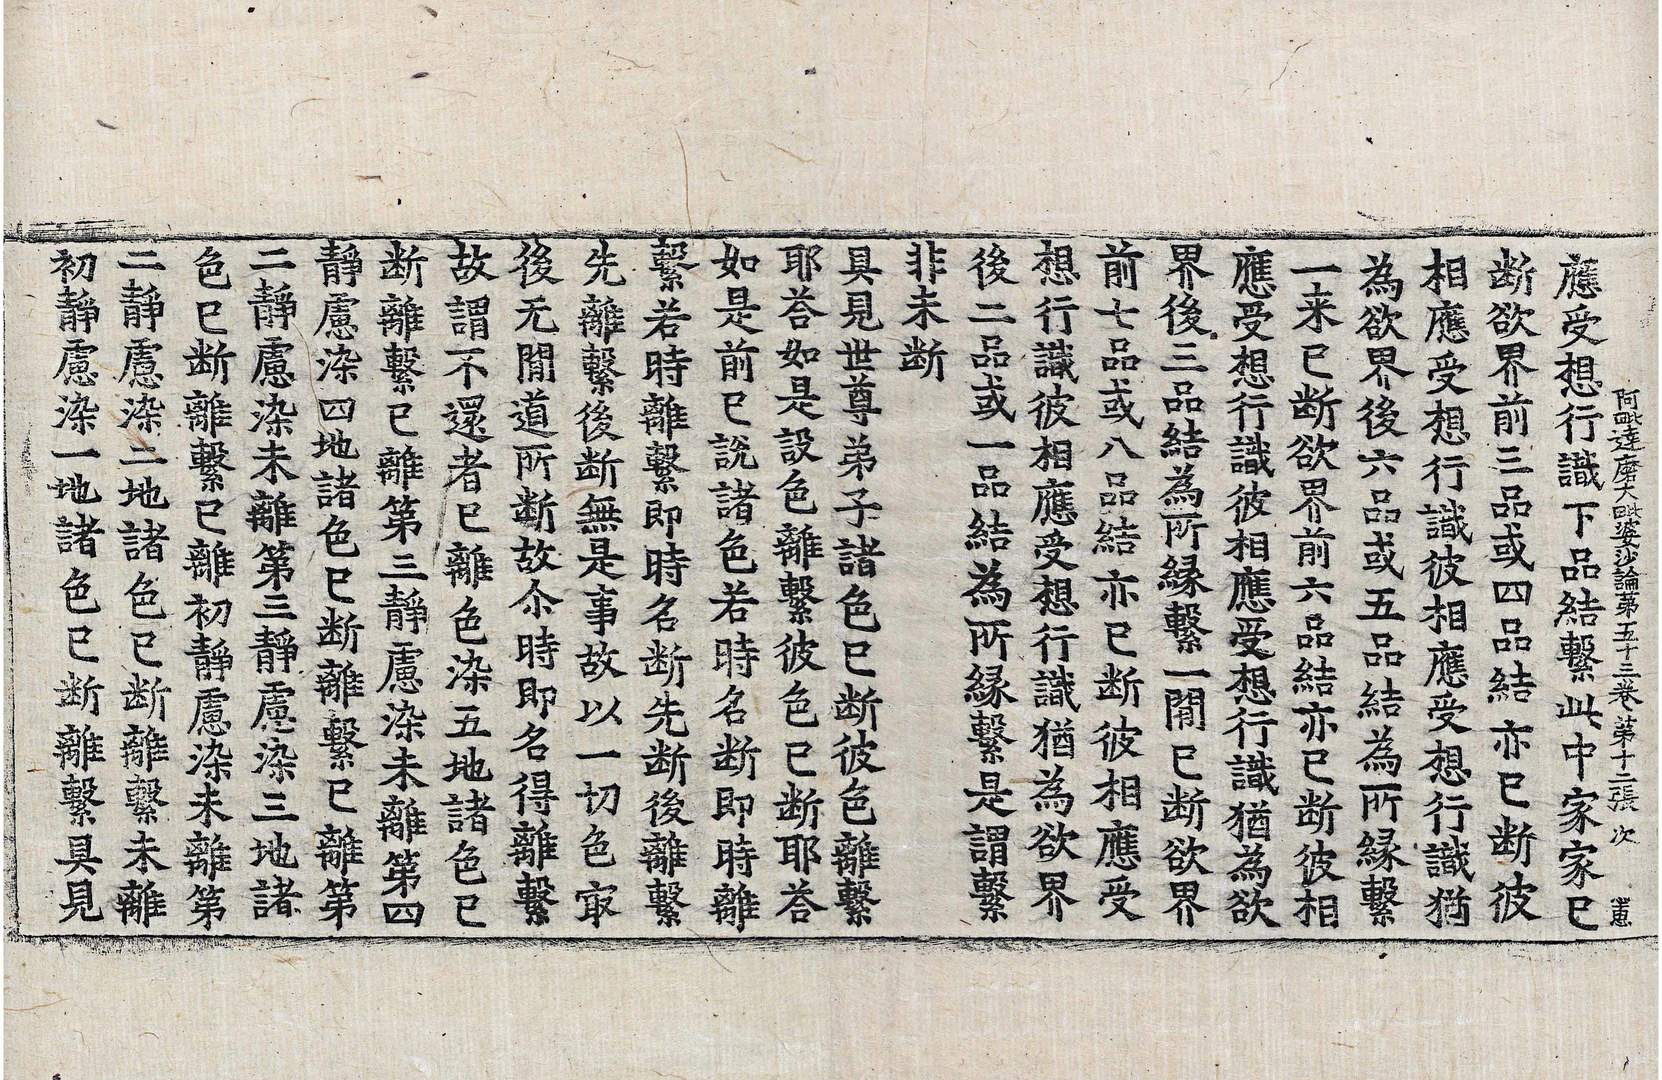 阿毗達磨大毗婆沙論第五十三卷 第十二張 次
應受想行識下品結繫此中家家已
断欲界前三品或四品結亦已断彼
相應受想行識彼相應受想行識猶
為欲界後六品或五品結為所緣繫
一来已断欲界前六品結亦已断彼相
應受想行識彼相應受想行識猶為欲
界後三品結為所緣繫一閒已断欲界
前七品或八品結亦已断彼相應受
想行識彼相應受想行識猶為欲界
後二品或一品結為所緣繫是謂繫
非未断
具見世尊弟子諸色已断彼色離繫
耶荅如是設色離繫彼色已断耶荅
如是前已說諸色若時名断即時離
繫若時離繫即時名断先断後離繫
先離繫後断無是事故以一切色㝡
後无閒道所断故尒時即名得離繫
故謂不還者已離色染五地諸色已
断離繫已離第三靜慮染未離第四
靜慮染四地諸色已断離繫已離第
二靜慮染未離第三靜慮染三地諸
色已断離繫已離初靜慮染未離第
二靜慮染二地諸色已断離繫未離
初靜慮染一地諸色已断離繫具見